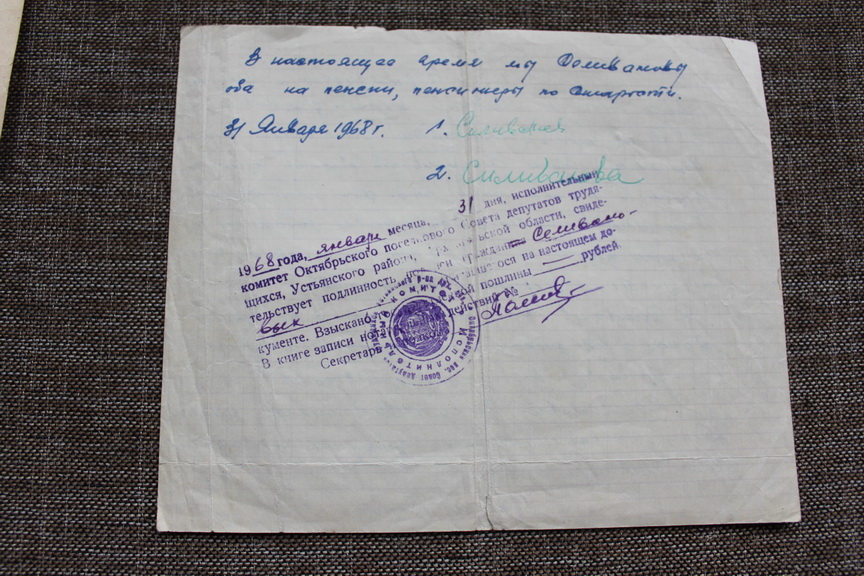 В настоящее время мы Селивановы
оба на пенсии, пенсионеры по старости.
31 Января 1968 г. 1. Селиванов
2. Силиванова
1968 года, январе месяца, 31 дня, исполнительный
комитет Октябрьского поселкового Совета депутатов трудя-
щихся, Устьянского района, Архангельской области, свиде-
тельствует подлинность подписи гражданина Селивано-
вых на настоящем до-
кументе. Взыскано пошлины рублей.
В книге записи действий №
Секретарь
Исполнительный комитет